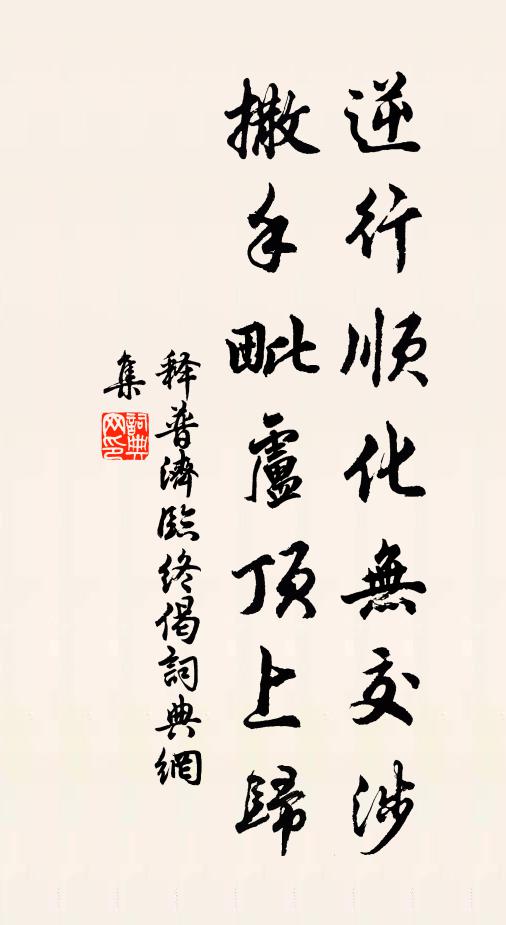 逆行順化無交涉
撒手毗盧頂上歸
释普濟臨終偈詞典網
集
詞典网印